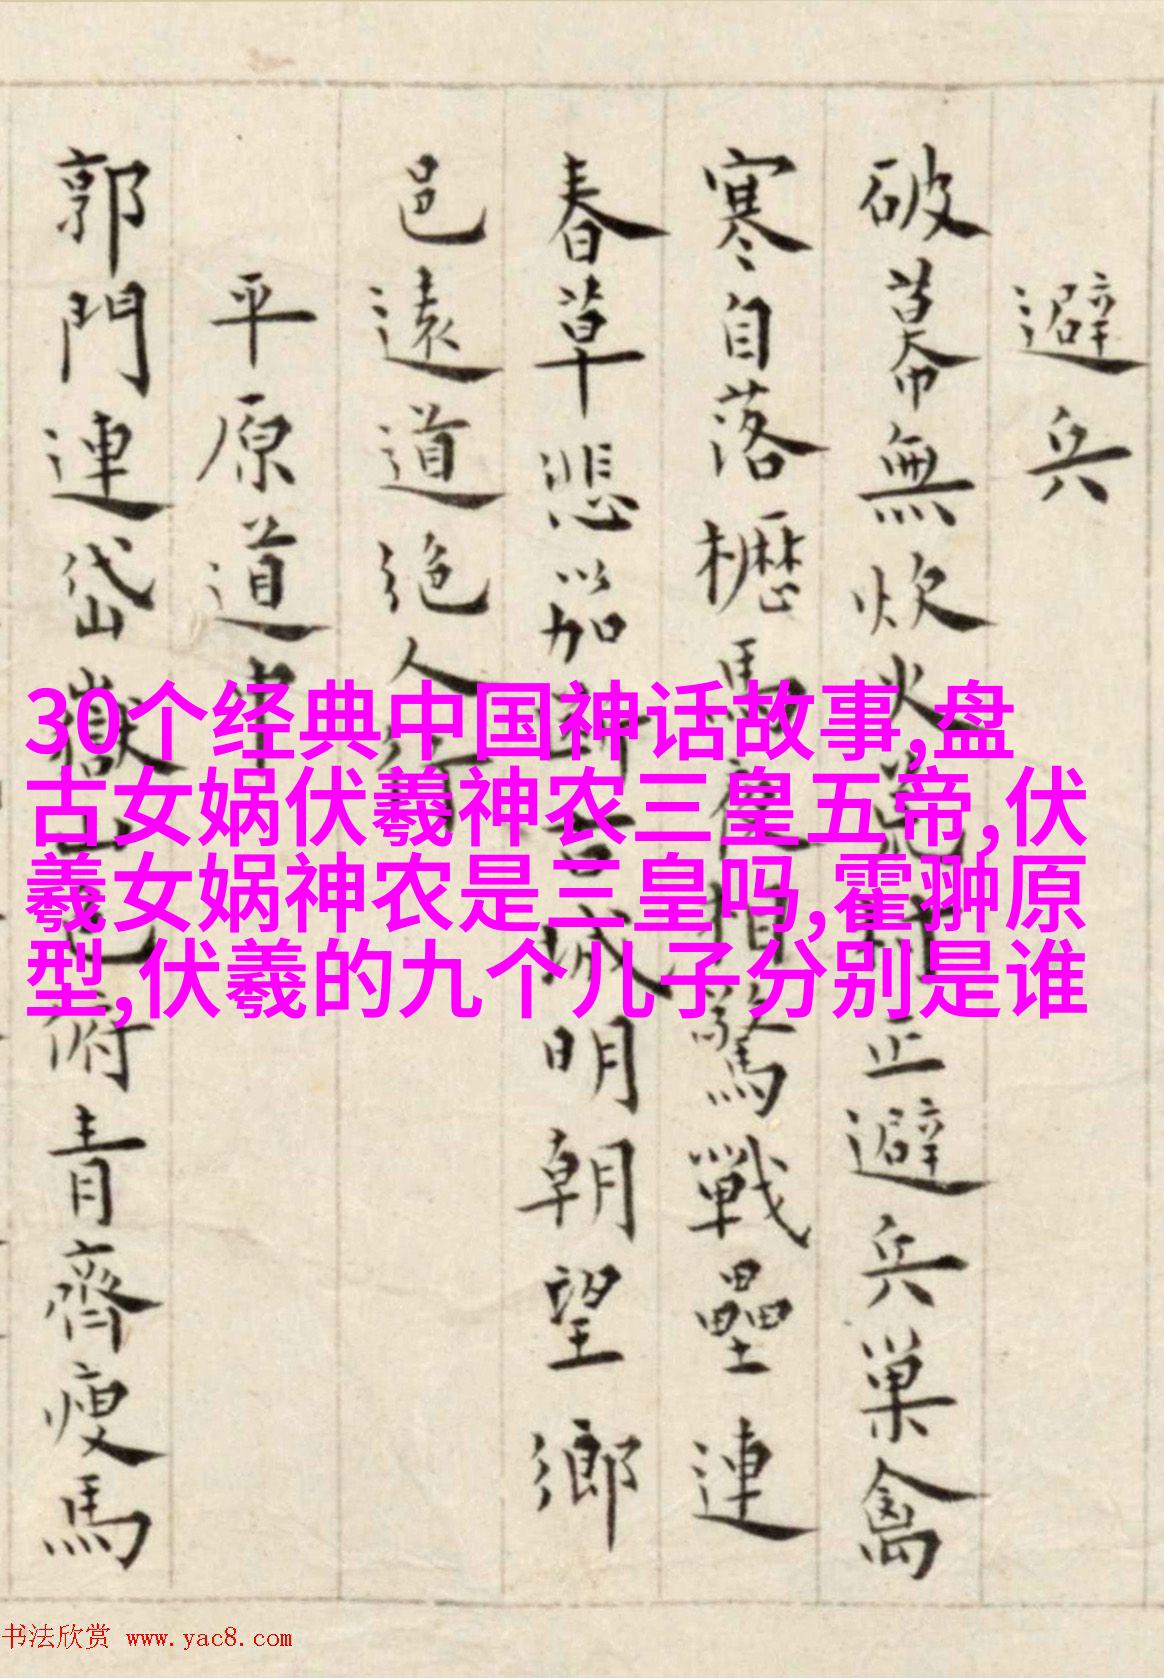 避兵
破幕無炊火正避兵巢禽
寒自落櫪馬夜相驚戰壘連
春草悲笳古城明朝望鄉
邑遠道絕人
平原道中
郭門連岱嶽色俯青齊瘦馬
30个经典中国神话故事,盘
古女娲伏羲神农三皇五帝,伏
羲女娲神农是三皇吗,霍翀原
型,伏羲的九个儿子分别是谁
书法欣赏 www.yac8.com